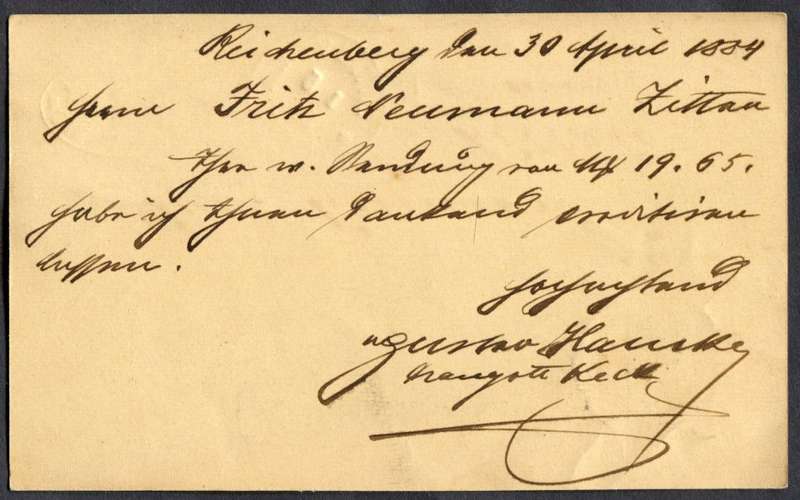 Reichenberg den 30 April 1884
Herrn Fritz Neumann Zittau
Ihre w. Sendung von Mk 19.65.
habe ich Ihnen dankend creditiren
lassen.
Hochachtend
Gustav